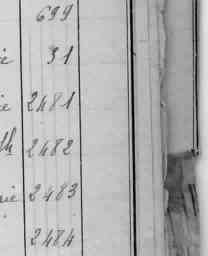 699
ie 31
ie 2481
th 2482
nie 2483
2484